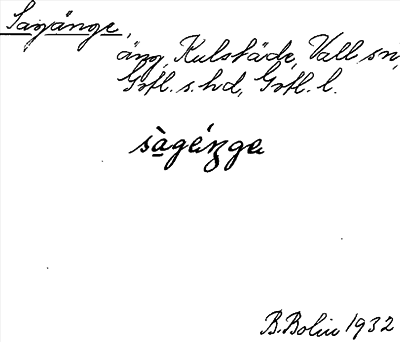 Sagänge,
äng, Kulstäde, Vall sn,
Gotl. s. hd, Gotl. l.
sàgénge
B. Bolin 1932